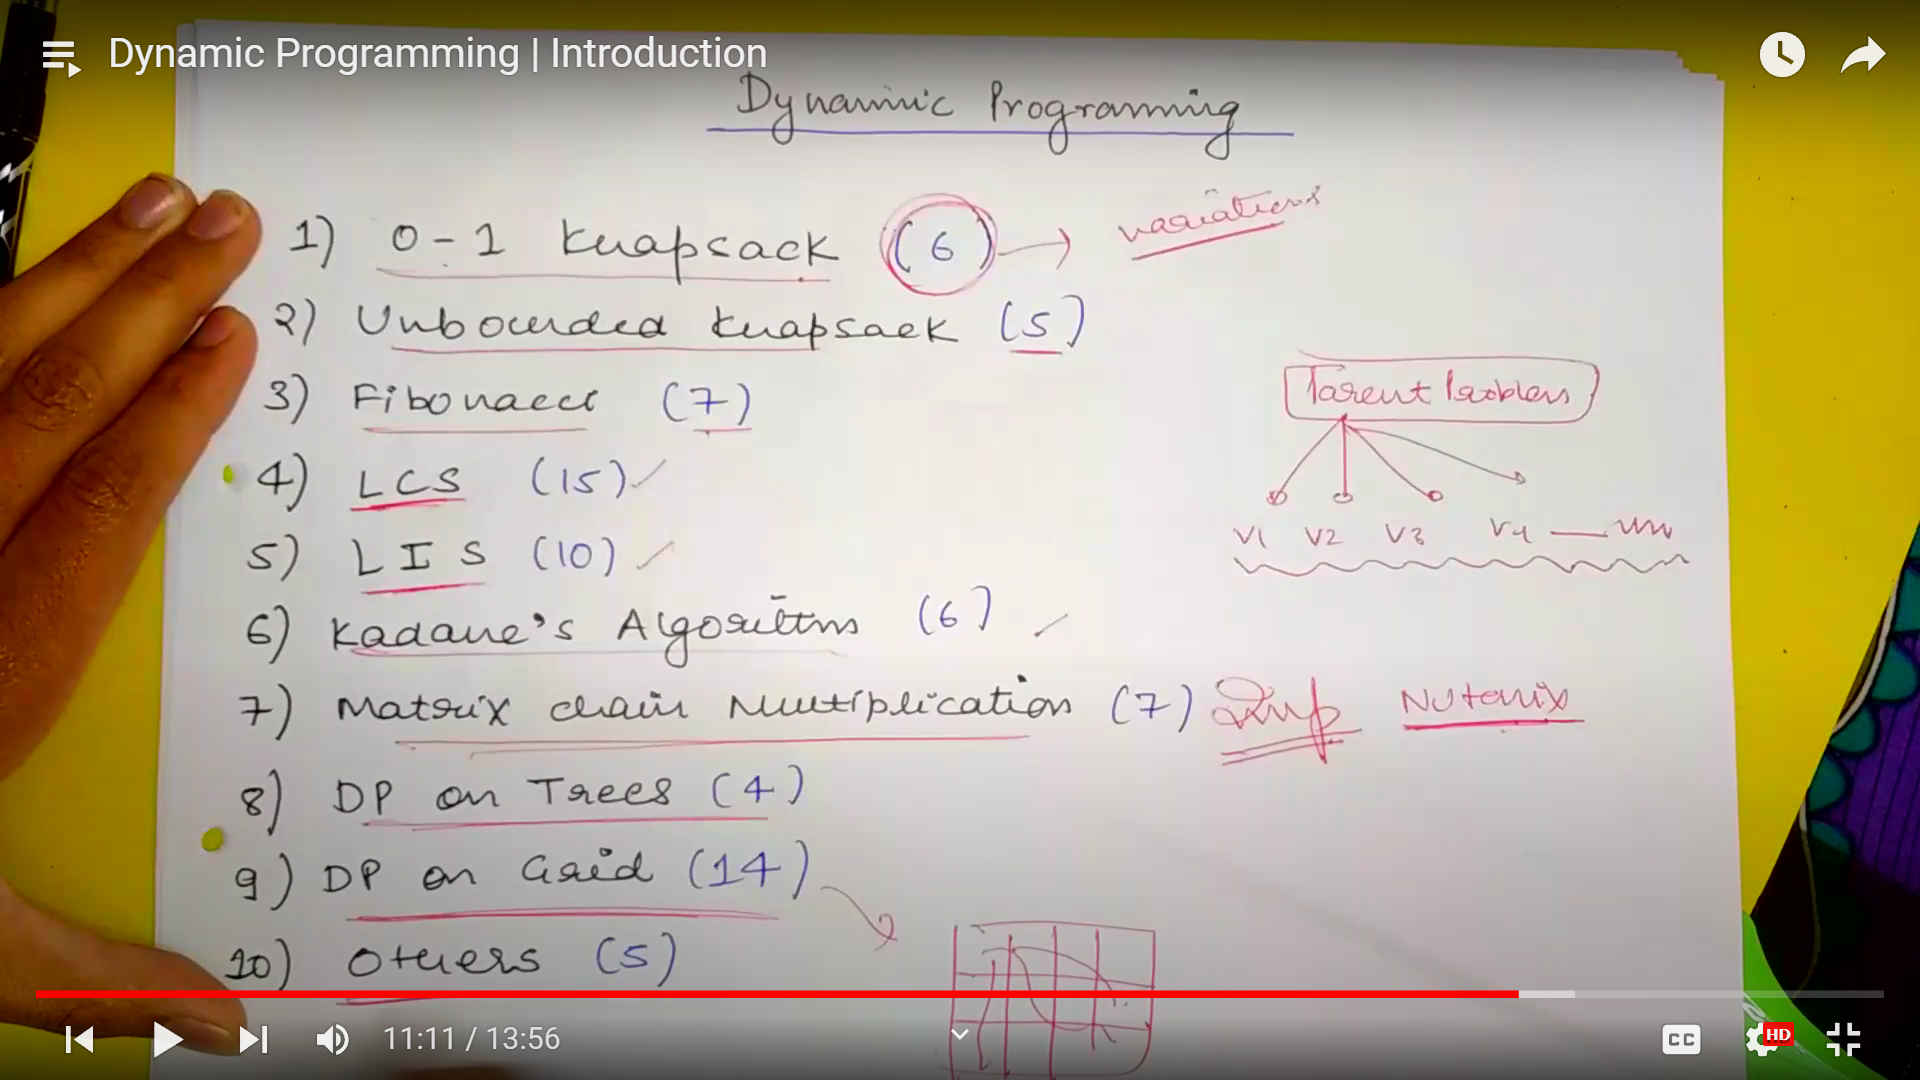 Dynamic Programming | Introduction
Dynamic Programming
1) 0-1 Knapsack (6) → variations
2) Unbounded Knapsack (5)
3) Fibonacci (7)
Parent Problem
4) LCS (15)
V1 V2 V3 V4
5) LIS (10)
6) Kadane's Algorithm (6)
7) Matrix chain Multiplication (7) Imp Nutanix
8) DP on Trees (4)
9) DP on Grid (14)
10) Others (5)
11:11 / 13:56
CC HD